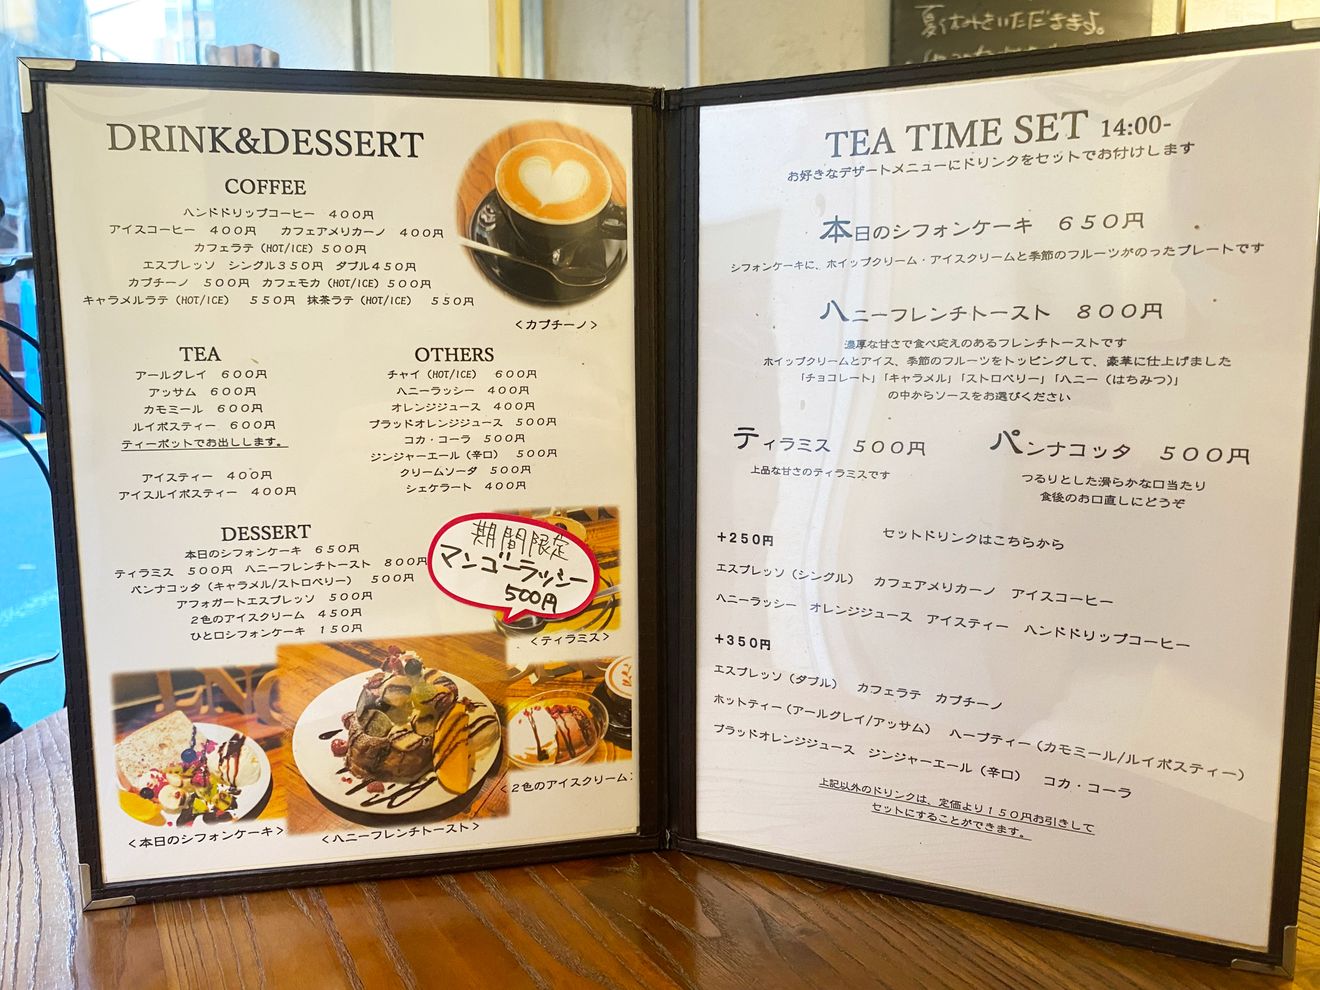 夏休みをいただきます。
DRINK&DESSERT
COFFEE
ハンドドリップコーヒー 400円
アイスコーヒー 400円 カフェアメリカーノ 400円
カフェラテ(HOT/ICE) 500円
エスプレッソ シングル350円 ダブル450円
カプチーノ 500円 カフェモカ(HOT/ICE) 500円
キャラメルラテ(HOT/ICE) 550円 抹茶ラテ(HOT/ICE) 550円
<カプチーノ>
TEA
アールグレイ 600円
アッサム 600円
カモミール 600円
ルイボスティー 600円
ティーポットでお出しします。
アイスティー 400円
アイスルイボスティー 400円
OTHERS
チャイ(HOT/ICE) 600円
ハニーラッシー 400円
オレンジジュース 400円
ブラッドオレンジジュース 500円
コカ・コーラ 500円
ジンジャーエール(辛口) 500円
クリームソーダ 500円
シェケラート 400円
DESSERT
本日のシフォンケーキ 650円
ティラミス 500円 ハニーフレンチトースト 800円
パンナコッタ(キャラメル/ストロベリー) 500円
アフォガートエスプレッソ 500円
2色のアイスクリーム 450円
ひと口シフォンケーキ 150円
期間限定
マンゴーラッシー
500円
<ティラミス>
<2色のアイスクリーム>
<本日のシフォンケーキ>
<ハニーフレンチトースト>
TEA TIME SET 14:00-
お好きなデザートメニューにドリンクをセットでお付けします
本日のシフォンケーキ 650円
シフォンケーキに、ホイップクリーム・アイスクリームと季節のフルーツがのったプレートです
ハニーフレンチトースト 800円
濃厚な甘さで食べ応えのあるフレンチトーストです
ホイップクリームとアイス、季節のフルーツをトッピングして、豪華に仕上げました
「チョコレート」「キャラメル」「ストロベリー」「ハニー(はちみつ)」
の中からソースをお選びください
ティラミス 500円
上品な甘さのティラミスです
パンナコッタ 500円
つるりとした滑らかな口当たり
食後のお口直しにどうぞ
セットドリンクはこちらから
+250円
エスプレッソ(シングル) カフェアメリカーノ アイスコーヒー
ハニーラッシー オレンジジュース アイスティー ハンドドリップコーヒー
+350円
エスプレッソ(ダブル) カフェラテ カプチーノ
ホットティー(アールグレイ/アッサム) ハーブティー(カモミール/ルイボスティー)
ブラッドオレンジジュース ジンジャーエール(辛口) コカ・コーラ
上記以外のドリンクは、定価より150円お引きして
セットにすることができます。